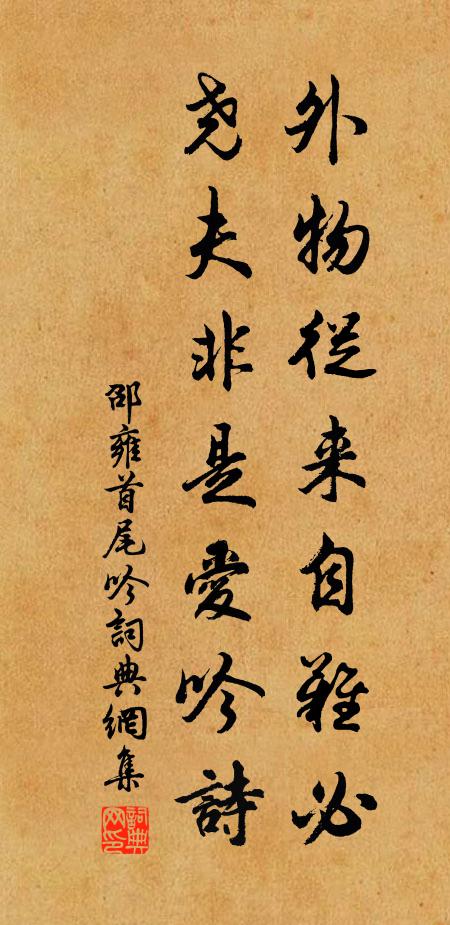 外物從来自難必
堯夫非是愛吟詩
邵雍首尾吟詞典網集
詞典網印